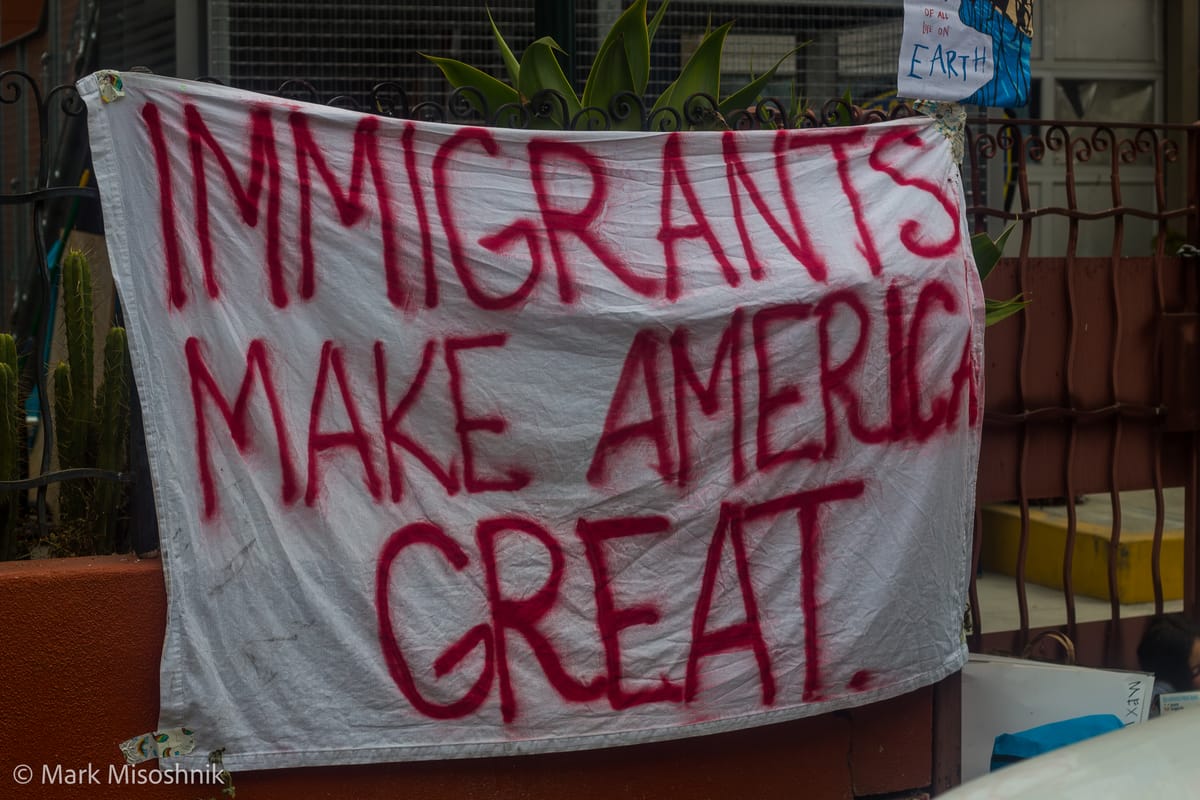 OF ALL
LIFE ON
EARTH
IMMIGRANTS
MAKE AMERICA
GREAT.
© Mark Misoshnik